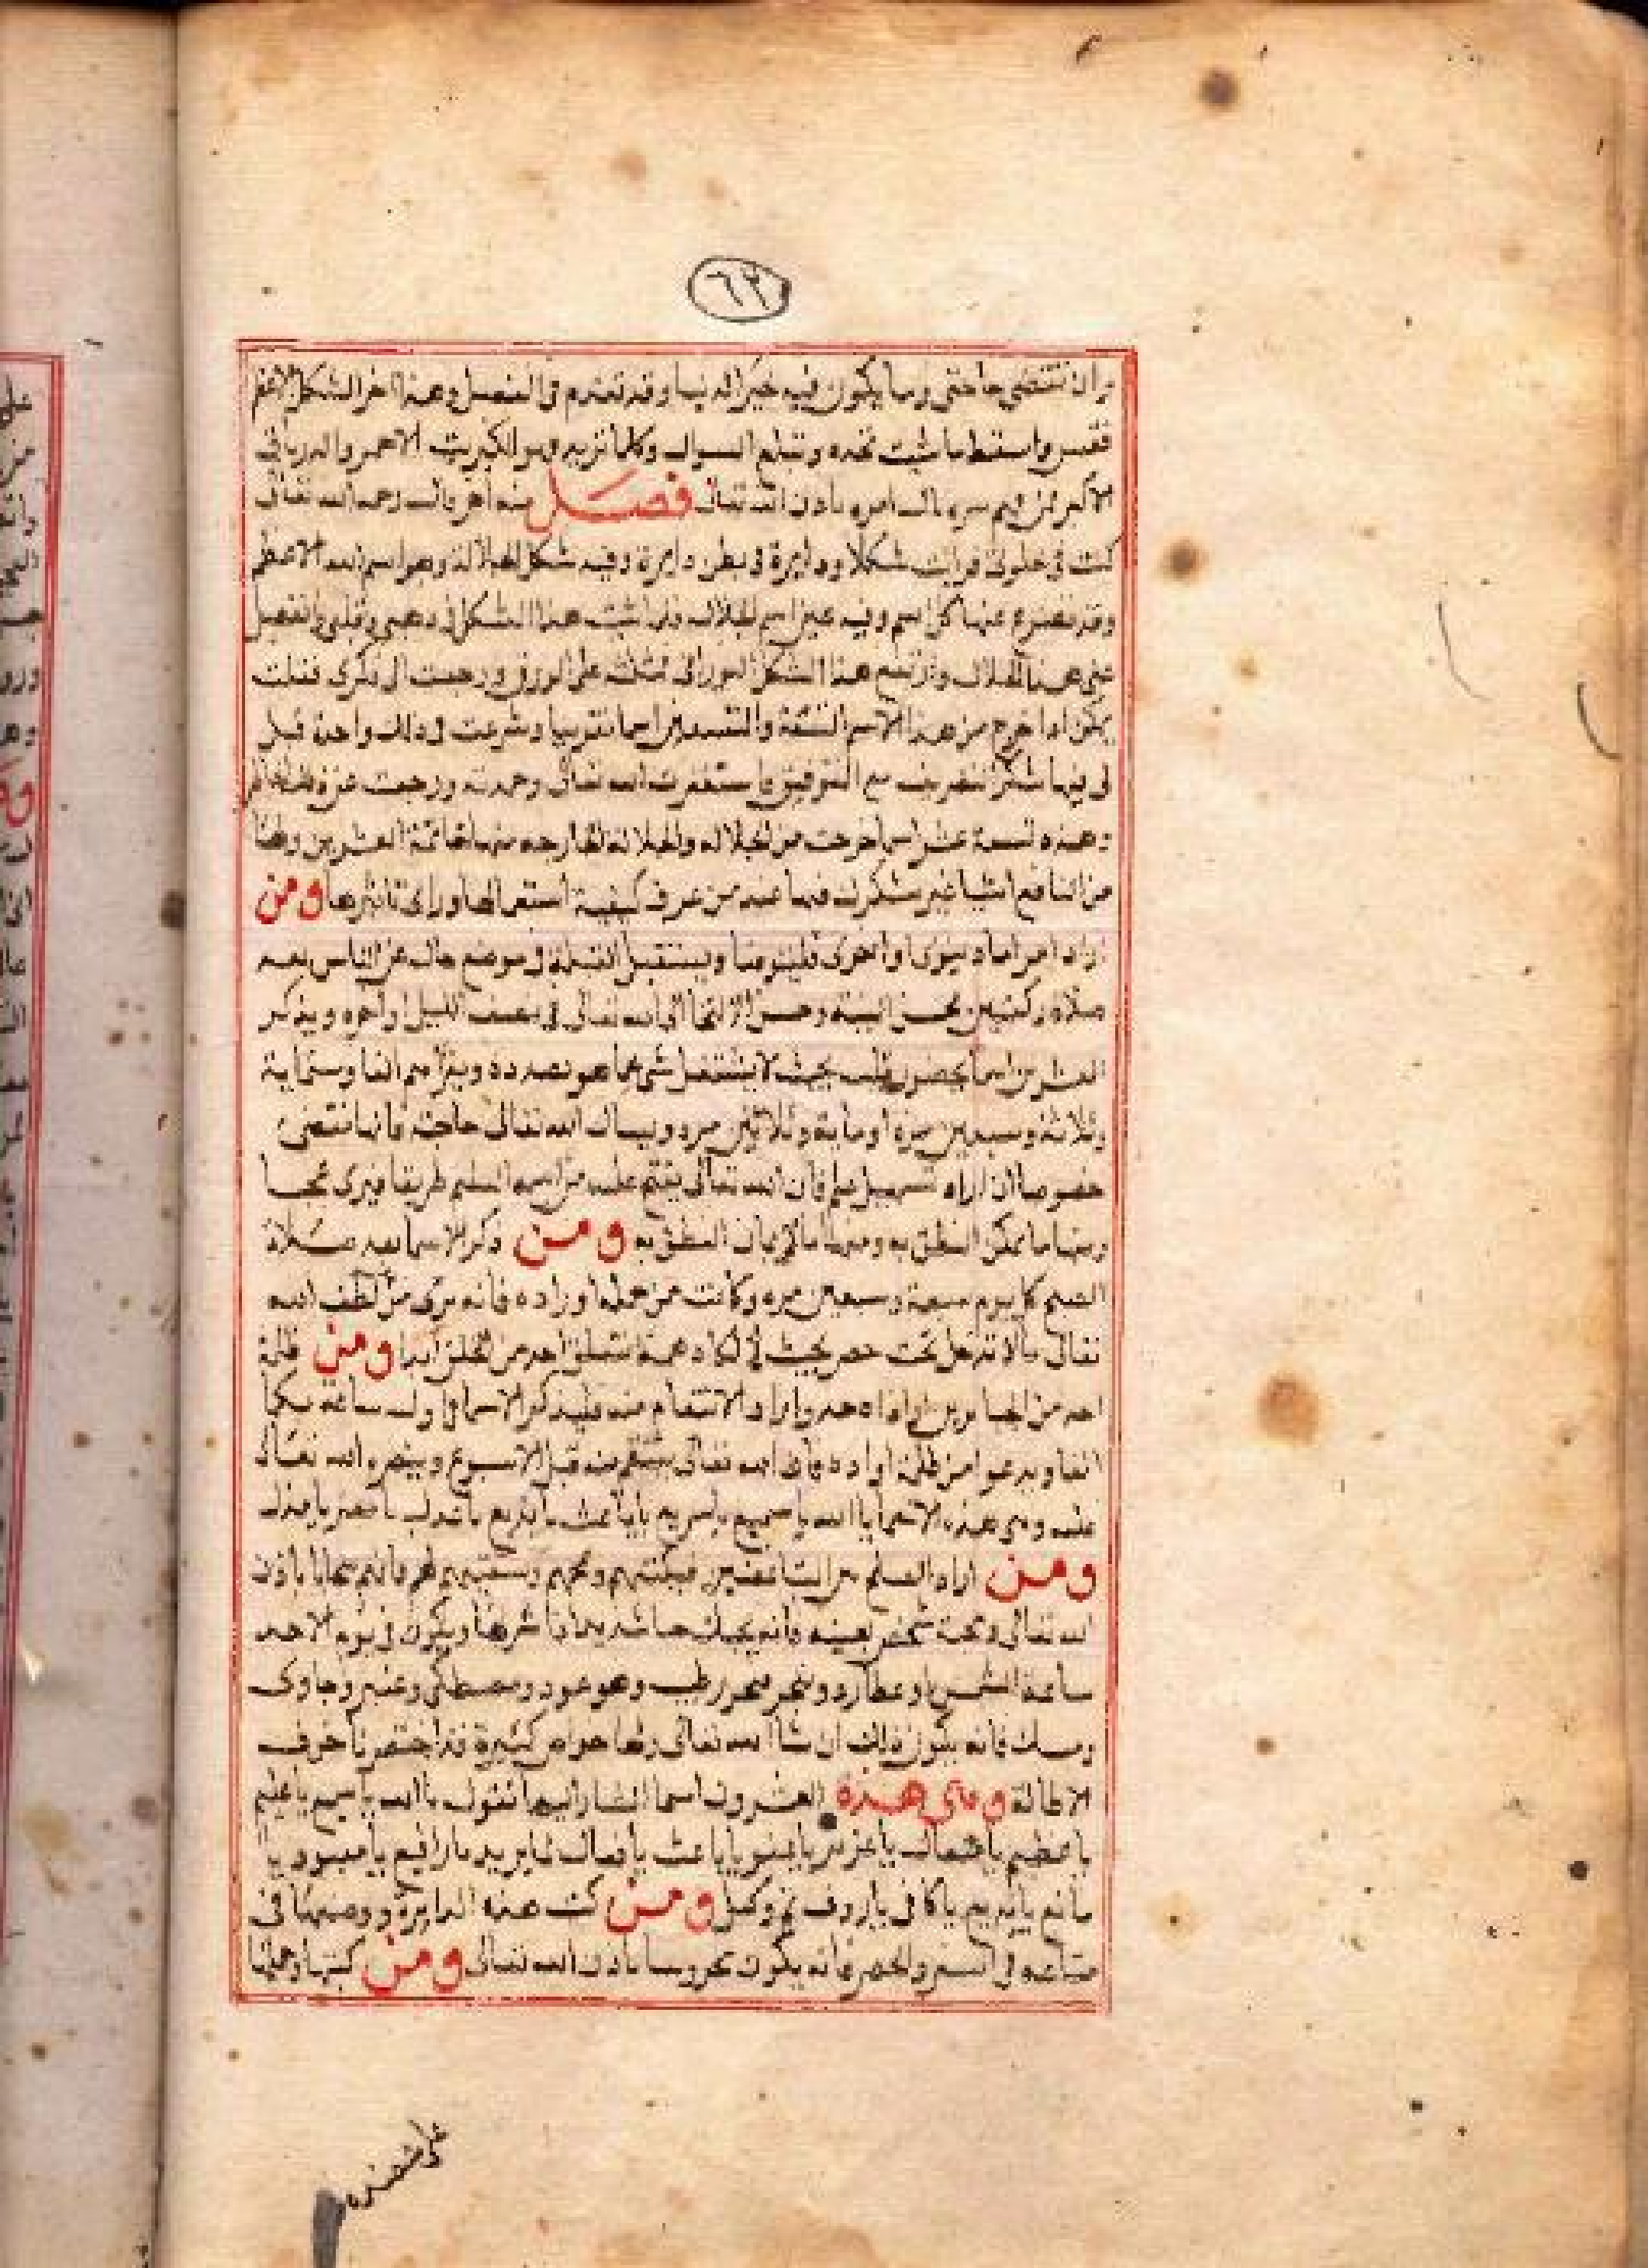 ٦٢
وان تنقضى حاجتى وما يكون فيه خير الدنيا وقد تقدم فى الفصل وهذا اخر الشكل الاعظم
فقس واسقط ما شيت تجده وتبلغ السوال وكلما تريد وهو الكبريت الاحمر والدرياق
الاكبر فمن فهم سره نال امره باذن الله تعالى فصل منه اخر قال رحمه الله تعالى
كنت فى خلوتى فرايت شكلا ودايرة فى بطن دايرة وفيه شكل الجلالة وهو اسم الله الاعظم
وقد تفرع عنها كل اسم وفيه عين اسم الجلالة فلما اثبت هذا الشكل فى ذهنى وقلبى وانفصل
عنى هذا الحال وارتفع هذا الشكل النورانى مثلث على الورق ورجعت الى ذكرى فقلت
يمكن اذا خرج من هذا الاسم التسعة والتسعين اسما تقريبا وشرعت فى ذلك واحدة قبل
لى فيها شكر تصريف مع التوفيق واستغفرت الله تعالى وحمدته ورجعت عن
وهذه تسعة عشر اسما خرجت من الجلالة والجلالة الخارجه منها خاتمة العشرين ولها
من المنافع اشيا غير متنكرات فيها عند من عرف كيفية استعمالها وراى تاثيرها ومن
اراد امرا ما دنيوى او اخروى فليتوضا ويستقبل القبلة فى موضع خال عن الناس بعد
صلاة ركعتين بحسن النية وحسن الالتجا الى الله تعالى فى نصف الليل او اخره ويذكر
العشرين اسما بحضور قلب بحيث لا يشتغل بشى عما هو بصدده ويقراهم الفا وستماية
وثلاثة وسبعين مرة او ماية وثلاثين مره ويسال الله تعالى حاجته فانها تقضى
خصوصا ان اراد تسهيل علم فان الله تعالى يفتح عليه من اسمه العليم طريقا فيرى عجبا
ومنها ما يمكن النطق به ومنها ما لا يمكن النطق به ومن ذكر الاسما بعد صلاة
الصبح كل يوم سبعة وسبعين مره وكانت من جملة اوراده فانه يرى من لطف الله
تعالى ما لا تدخل تحت حصر بحيث لا يكاد همه يتعلق باحد من الخلق ابدا ومن ظلمه
احد من الجبابرين او اذاه احد واراد الانتقام منه فليذكر الاسما اول ساعة
الفا ويدعو على من ظلمه او اذاه فان الله تعالى ينتقم منه قبل الاسبوع وينصره الله تعالى
عليه وهى هذه الاسما يا الله يا سميع يا سريع يا باعث يا بديع يا عدل يا معز يا مذل
ومن اراد الصلح بين المتباغضين فيكتبهم ويمحيهم ويسقيهم لهم فانهم يتحابا باذن
الله تعالى ومحبة شخص بعينه فانه يحبك حبا شديدا اذا شربها ويكون فى يوم الاحد
ساعة الشمس او عطارد وبخر ببخور طيب وهو عود ومصطكى وعنبر وجاوى
ومسك فانه يكون ذلك ان شا الله تعالى ولها خواص كثيرة قد اختصرنا خوف
الاطالة وهى هذه العشرون اسما المشار اليها تقول يا الله يا سميع يا عليم
يا عظيم يا متعال يا عزيز يا عفو يا باعث يا فعال لما يريد يا رافع يا معبود يا
مانع يا بديع يا كافى يا روف ومن كتب هذه الدايرة ووضعها فى
متاعه فى السفر والحضر فانه يكون محروسا باذن الله تعالى ومن كتبها وحملها